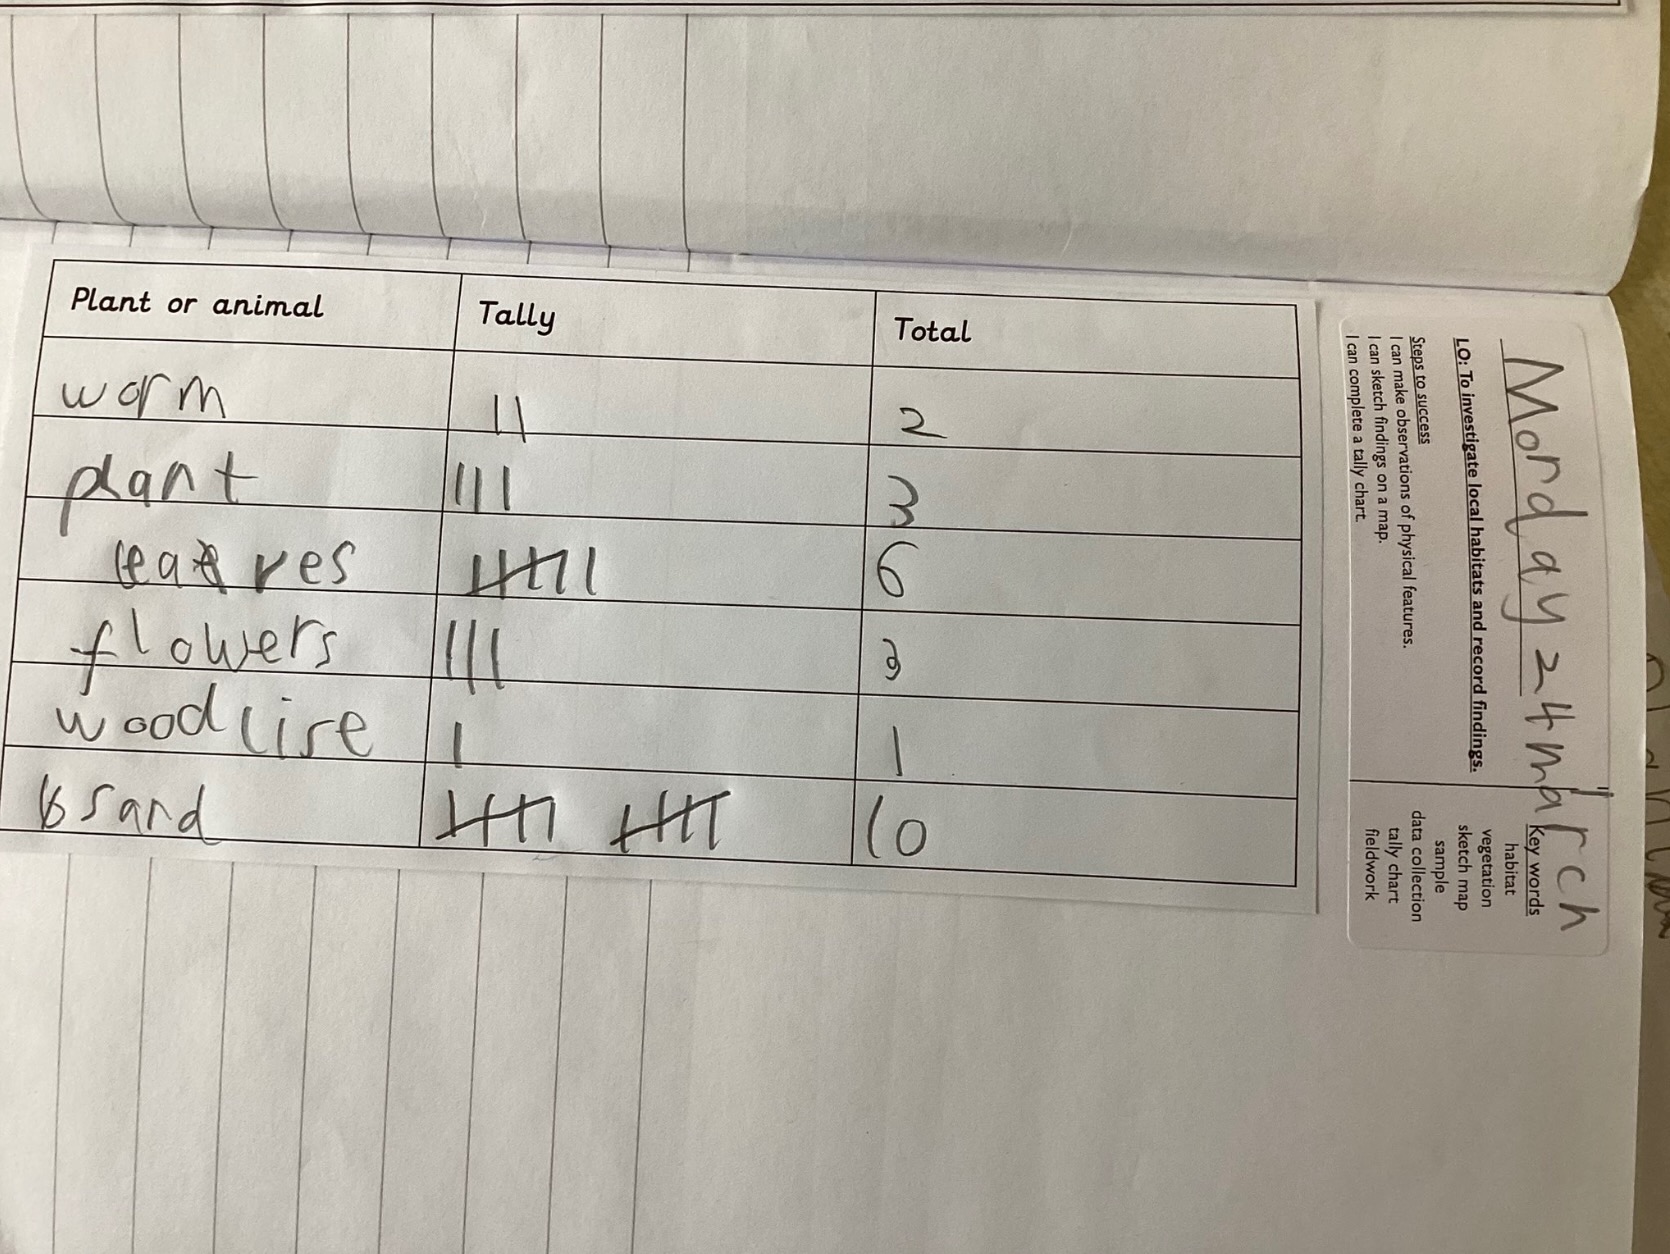 Plant or animal Tally Total
worm || 2
plant ||| 3
leaves 6
flowers ||| 3
woodlise | 1
sand 10
Monday 24 march
LO: To investigate local habitats and record findings.
Steps to success
I can make observations of physical features.
I can sketch findings on a map.
I can complete a tally chart.
Key words
habitat
vegetation
sketch map
sample
data collection
tally chart
fieldwork